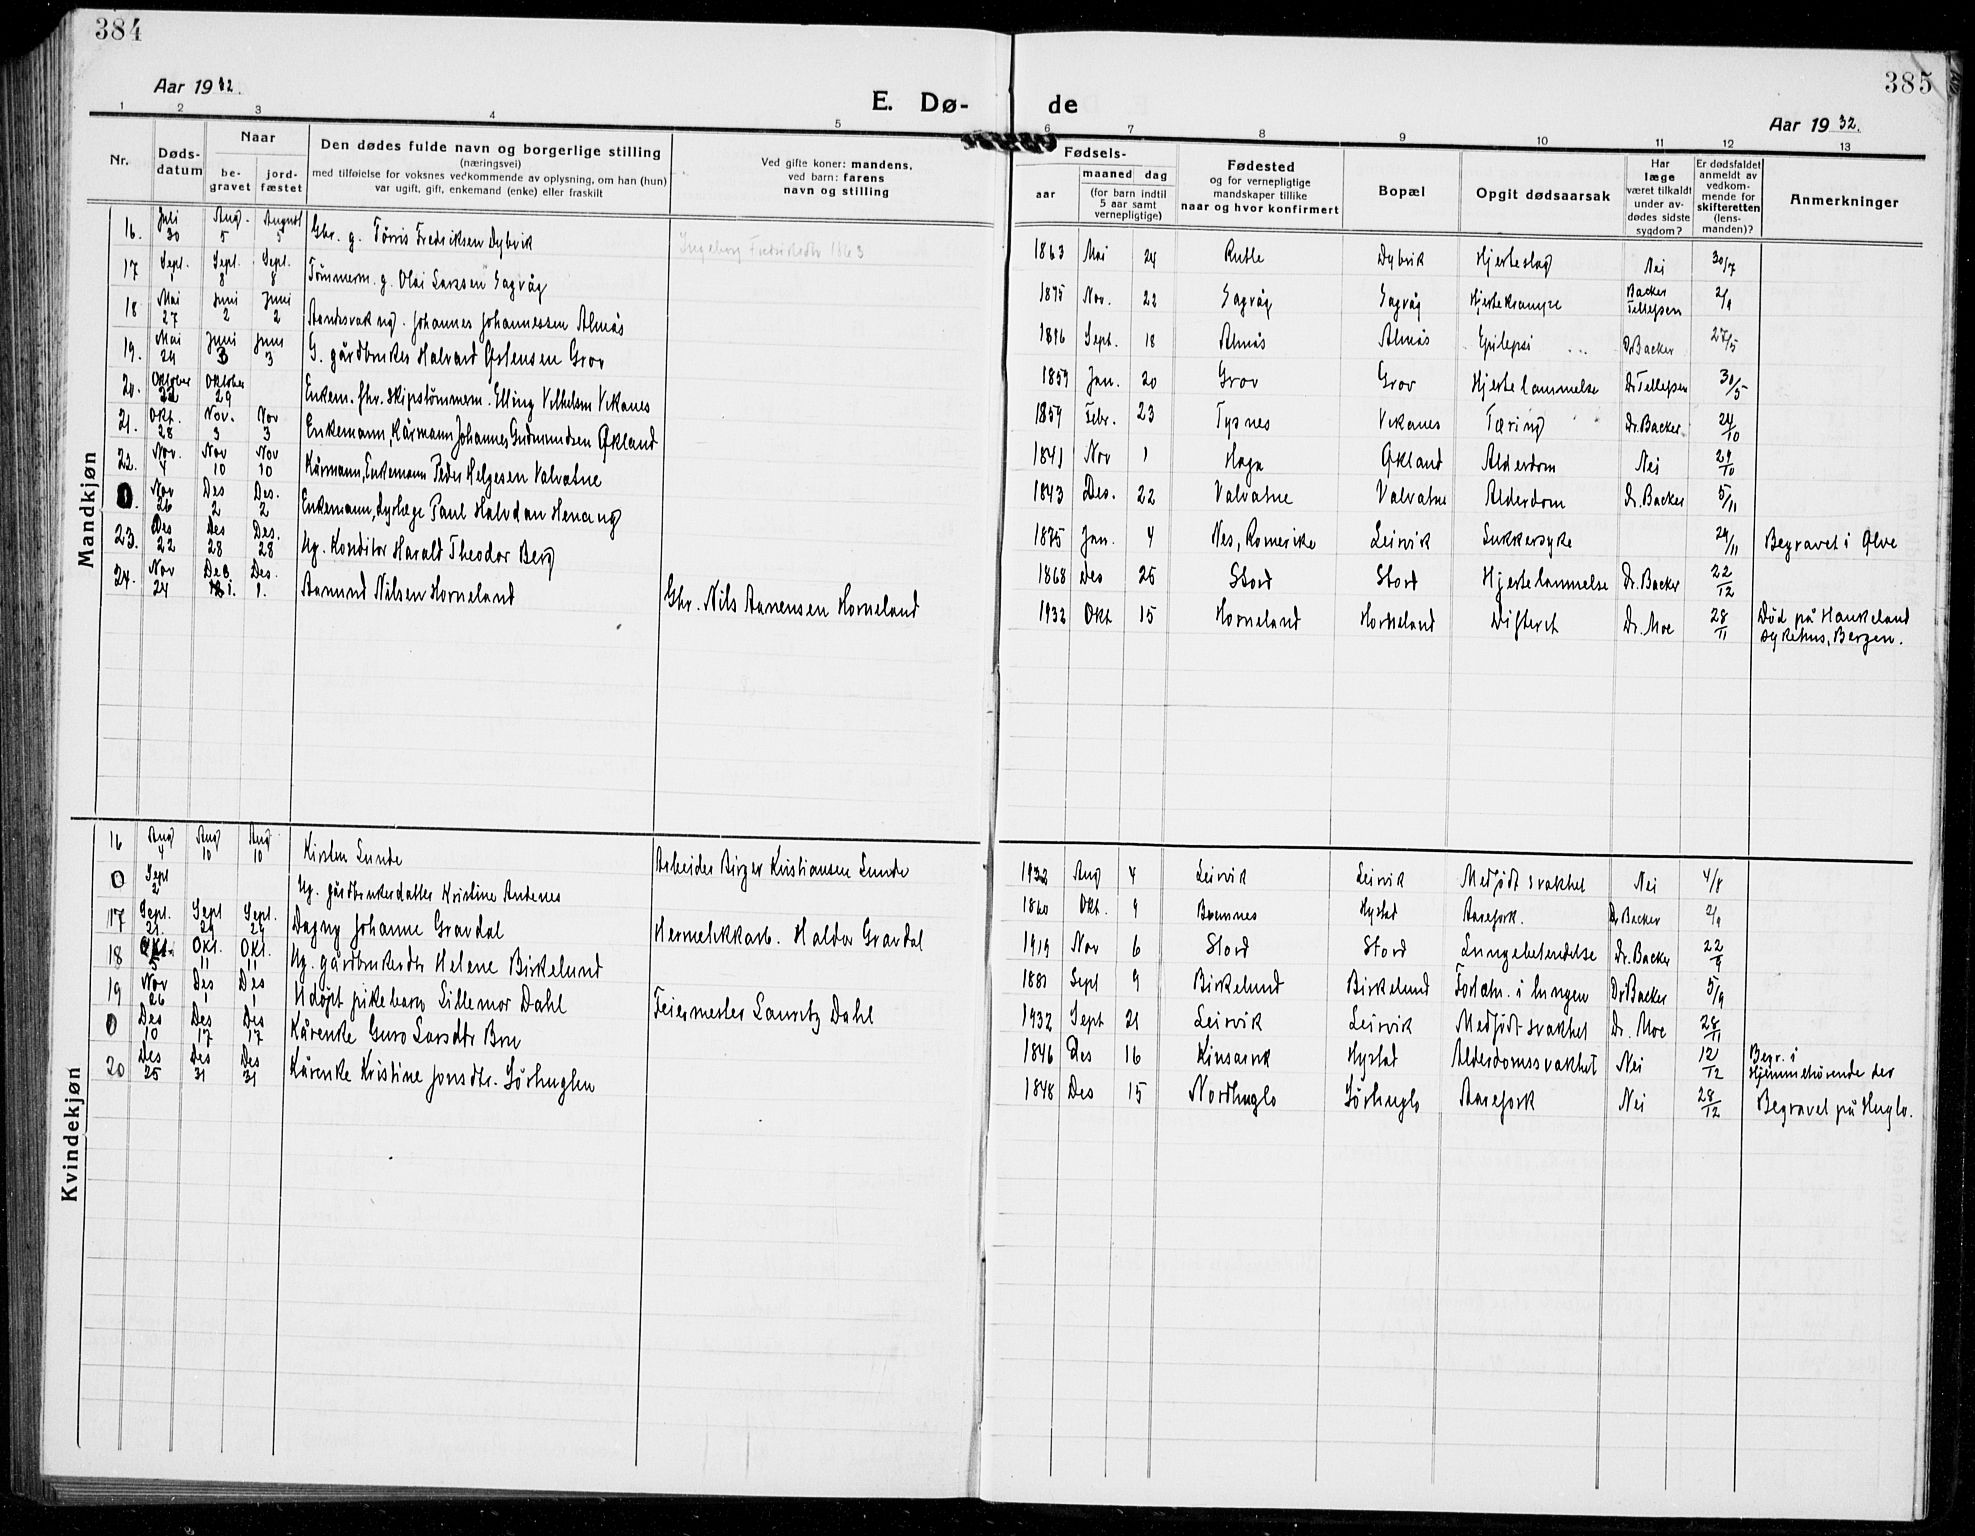 384
385
Aar 1932.
E. Dø-
de
Aar 1932.
1 2 3 4 5 6 7 8 9 10 11 12 13
Nr.
Døds-
datum
Naar
be-
gravet
jord-
fæstet
Den dødes fulde navn og borgerlige stilling
(næringsvei)
med tilføielse for voksnes vedkommende av oplysning, om han (hun)
var ugift, gift, enkemand (enke) eller fraskilt
Ved gifte koner: mandens,
ved barn: farens
navn og stilling
Fødsels-
aar
maaned dag
(for barn indtil
5 aar samt
vernepligtige)
Fødested
og for vernepligtige
mandskaper tillike
naar og hvor konfirmert
Bopæl
Opgit dødsaarsak
Har
læge
været tilkaldt
under av-
dødes sidste
sygdom?
Er dødsfaldet
anmeldt av
vedkom-
mende for
skifteretten
(lens-
manden)?
Anmerkninger
Mandkjøn
16. Juli 30 Aug. 5 August 5 Gbr. g. Tørris Fredriksen Dybvik Ingeborg Fredriksdtr 1863 1863 Mai 24 Rutle Dybvik Hjerteslag Nei 30/7
17 Sept. 1 Sept. 8 Sept. 8 Tømmerm. g. Olai Larssen Sagvåg 1875 Nov. 22 Sagvåg Sagvåg Hjertekrampe Backer Tellefsen 2/9
18 Mai 27 Juni 2 Juni 2 Aandssvak ug. Johannes Johannessen Almås 1896 Sept. 18 Almås Almås Epilepsi Dr Backer 27/5
19. Mai 29 Juni 3 Juni 3 G. gårdbruker Halvard Østensen Grov 1859 Jan. 20 Grov Grov Hjertelammelse Dr Tellefsen 30/5
20. Oktober 22 Oktober 29 Enkem. fhv. skipstømmerm. Elling Vilhelm Vikanes 1859 Febr. 23 Tysnes Vikanes Tæring Dr. Backer 24/10
21. Okt. 28 Nov. 3 Nov 3 Enkemann, Kårmann Johannes Gudmundsen Økland 1841 Nov 1 Haga Økland Alderdom Nei 29/10
22. Nov. 4 Nov 10 Nov 10 Kårmann, Enkemann Peder Helgesen Valvatne 1843 Des. 22 Valvatne Valvatne Alderdom Dr. Backer 5/11
0. Nov 26 Des 2 Des. 2 Enkemann, dyrlæge Paul Halvdan Henang 1875 Jan. 4 Nes, Romerike Leirvik Sukkersyke 29/11 Begravet i Ølve
23. Des 22 Des 28 Des. 28 Ug. Konditor Harald Theodor Berg 1868 Des 25 Stord Stord Hjertelammelse Dr. Backer 22/12
24. Nov 24 Des. 1. Des. 1. Aamund Nilsen Horneland Gbr. Nils Aanensen Horneland 1932 Okt 15 Horneland Horneland Difteret Dr. Moe 28/11 Død på Haukeland
sykehus, Bergen.
Kvindekjøn
16 Aug 4 Aug 10 Aug 10 Kirsten Lunde Arbeider Birger Kristiansen Lunde 1932 Aug 4 Leirvik Leirvik Medfødt svakhet Nei 4/8
0 Sept 2 Ug. gårdbrukerdatter Kristine Andenes 1860 Okt. 9 Bremnes Hystad Aarefork. Dr Backer 2/9
17 Sept. 21. Sept 29 Sept. 29 Dagny Johanne Gravdal Hermetikkarb. Haldor Gravdal 1919 Nov 6 Stord Stord Lungebetendelse Dr. Backer 22/9
18 Okt. 5 Okt. 11 Okt. 11 Ug. gårdbrukerdtr Helene Birkelund 1881 Sept 9 Birkelund Birkelund Fortetn. i lungen Dr Backer 5/9
19 Nov 26 Des 1 Des 1 Udøpt pikebarn Lillemor Dahl Feiermester Lauritz Dahl 1932 Sept 21 Leirvik Leirvik Medfødt svakhet Dr. Moe 28/11
0 Des 10 Des 17 Des 17 Kårenke Guro Larsdtr Bru 1846 Des 16 Kinsarvik Hystad Alderdomssvakhet Nei 12/12 Begr. i
Hjemmehørende der
20 Des 25 Des 31 Des 31 Kårenke Kristine Jonsdtr. Sørhuglen 1848 Des 15 Nordhuglo Sørhuglo Aarefork Nei 28/12 Begravet på Huglo.